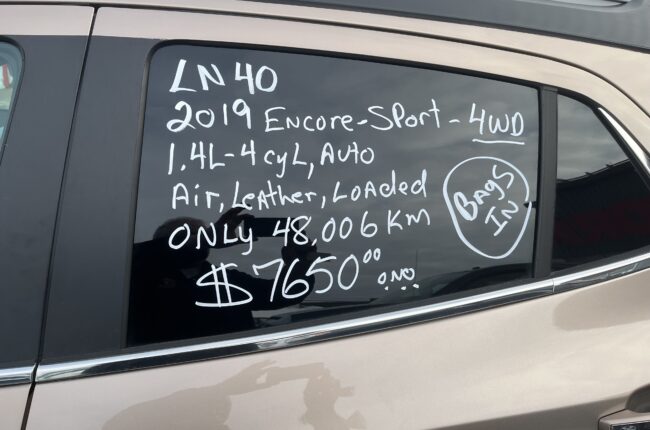 LN40
2019 Encore-Sport-4WD
1.4L-4cyL, Auto
Air, Leather, Loaded
ONLY 48,006 Km
$7650⁰⁰ O.N.O.
BAGS
IN